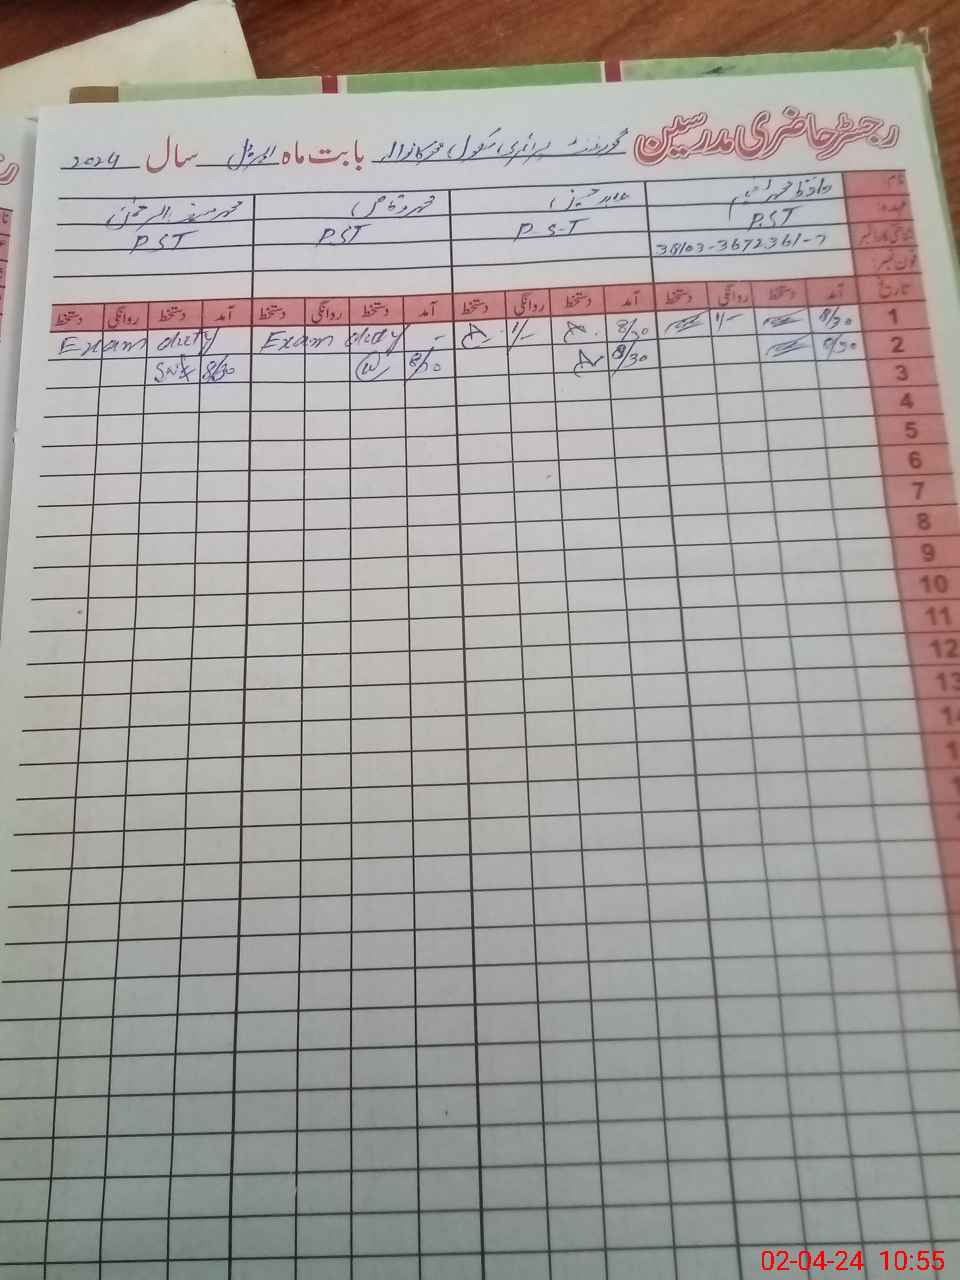 رجسٹر حاضری مدرسین گورنمنٹ پرائمری سکول بابت ماہ اپریل سال 2024
نام: حافظ محمد
عہدہ: P.ST P-S-T PST PST
شناختی کارڈ نمبر 38103-3672361-7
فون نمبر:
تاریخ آمد دستخط روانگی دستخط آمد دستخط روانگی دستخط آمد دستخط روانگی دستخط آمد دستخط روانگی دستخط
1 8/30 1/- 8/30 1/- Exam duty Exam duty
2 8/30 8/30 8/30 8/30
3
4
5
6
7
8
9
10
11
12
13
14
02-04-24 10:55